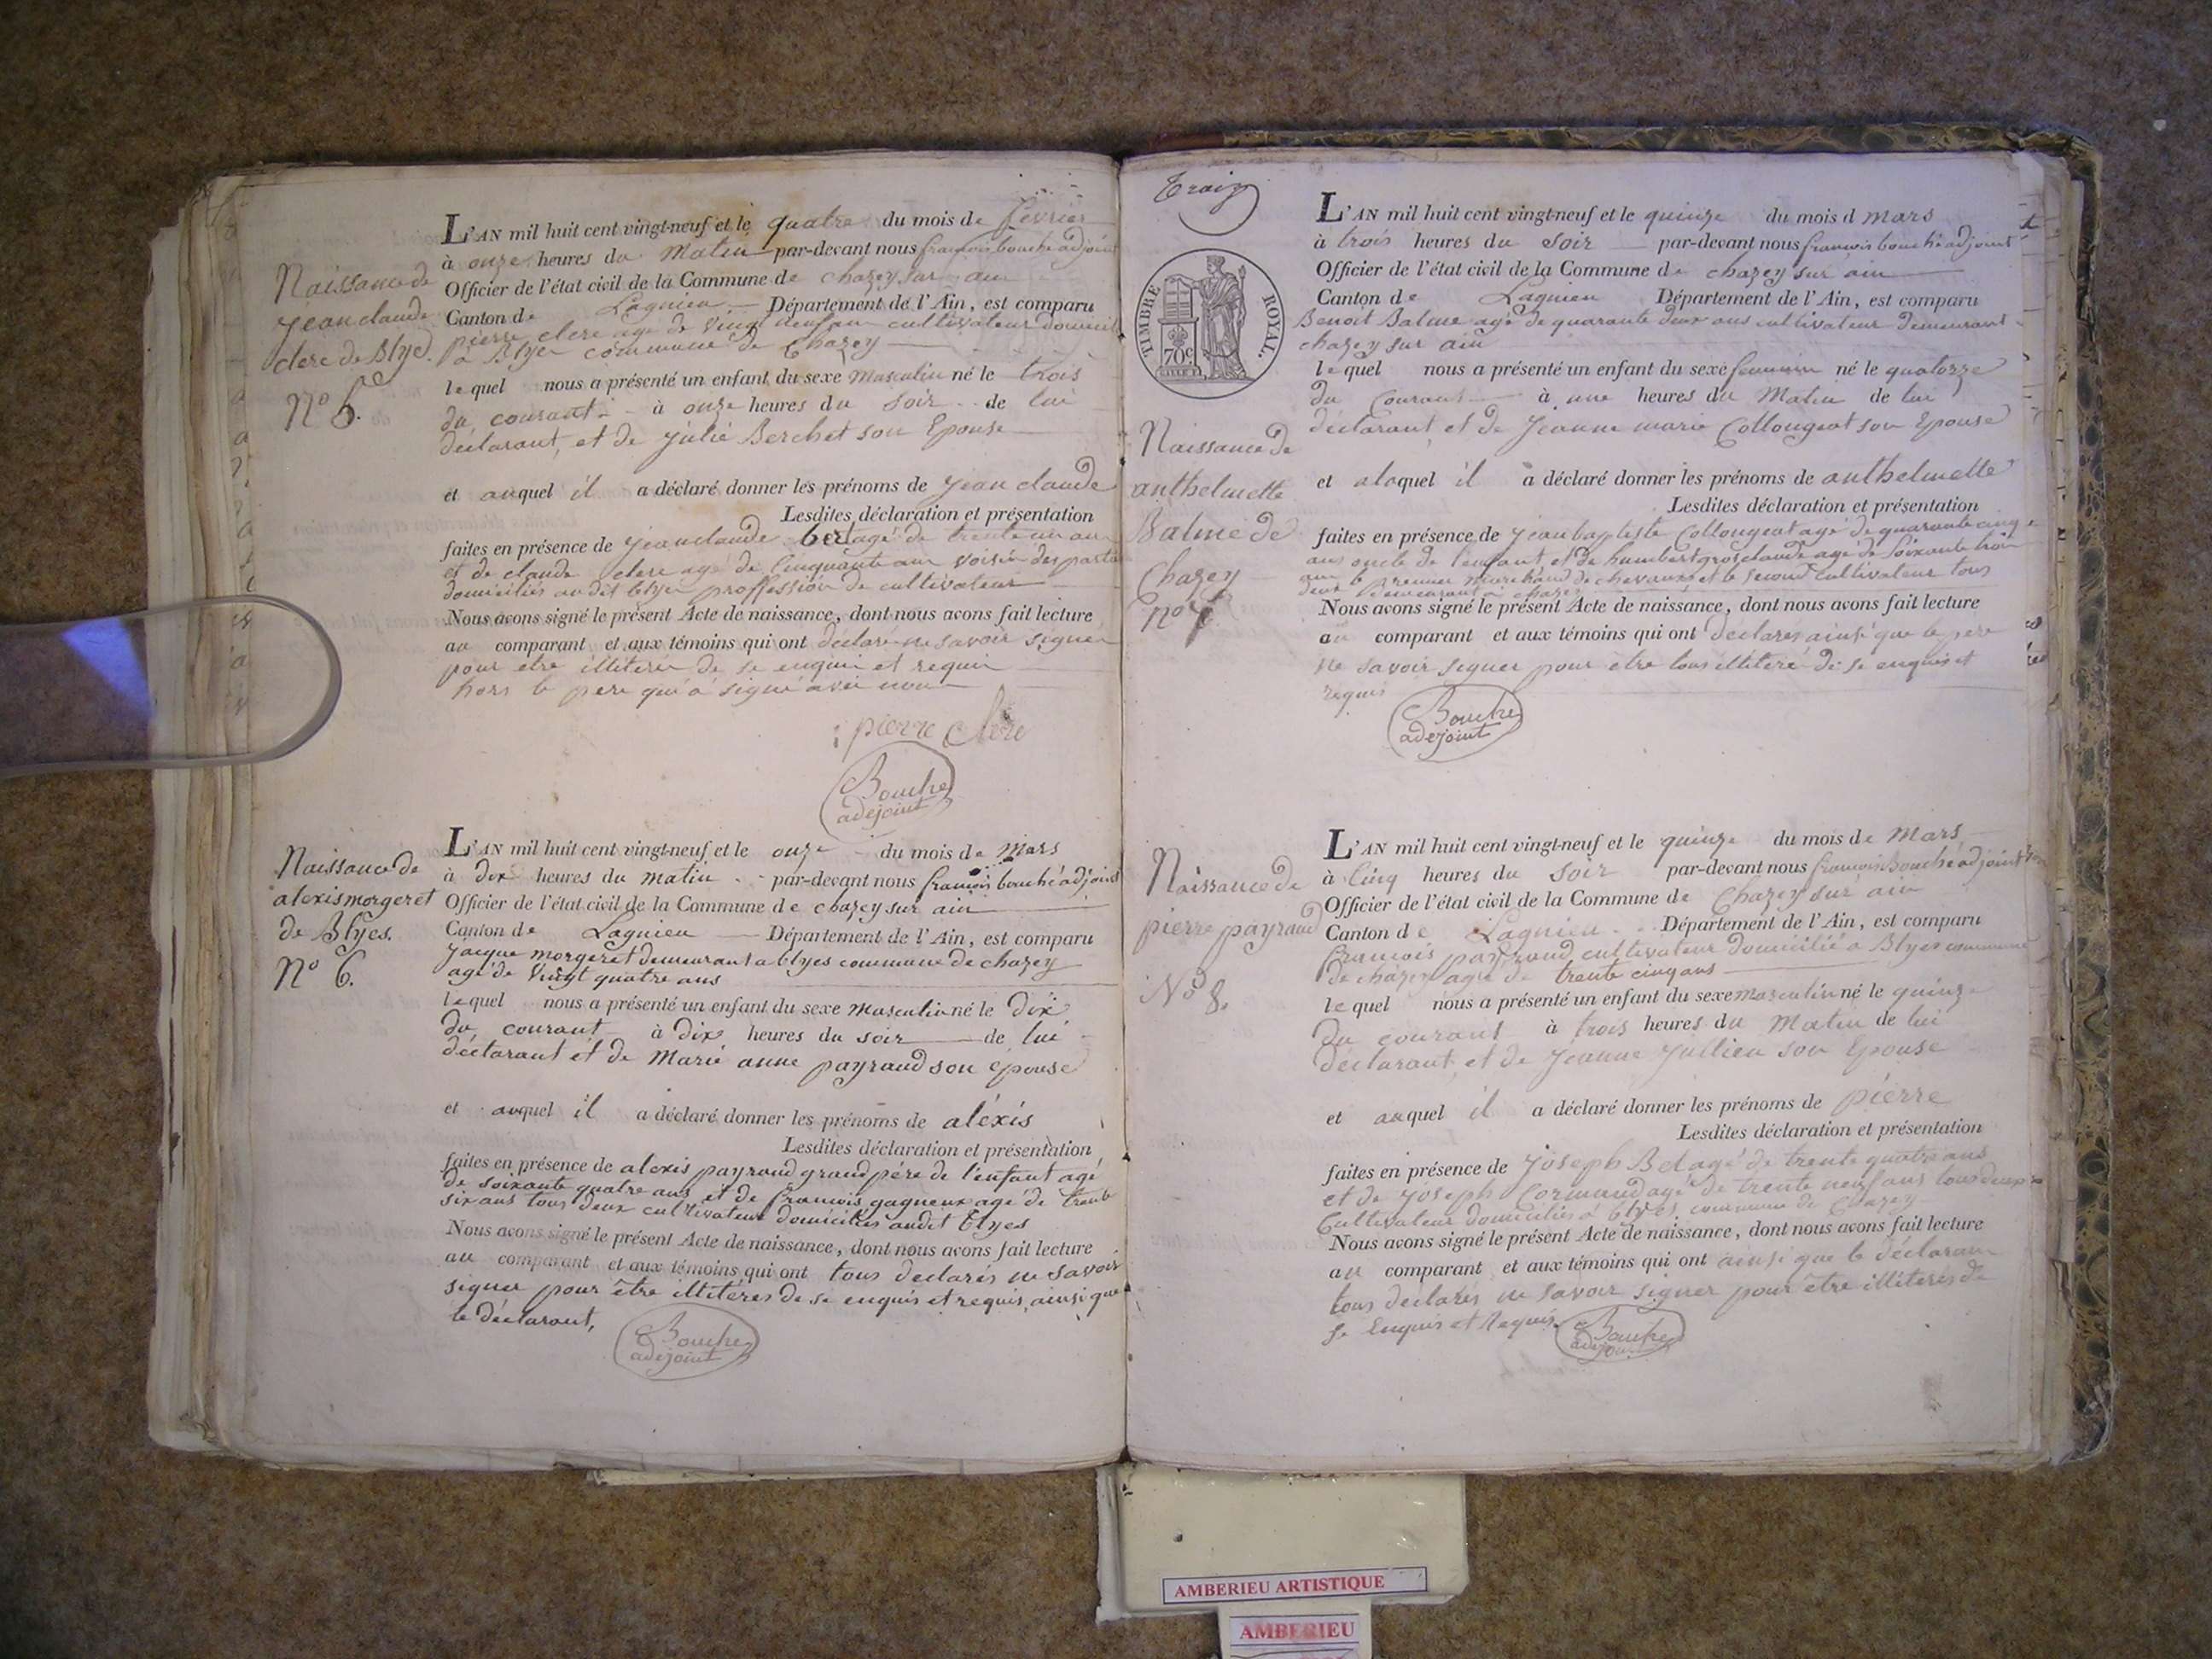 Naissance de
Jean claude
clerc de Blye
N° 5.
L'AN mil huit cent vingt-neuf et le quatre du mois de fevrier
à onze heures du Matin par-devant nous francois bouché adjoint
Officier de l'état civil de la Commune de chazey sur ain
Canton de Lagnieu Département de l'Ain, est comparu
pierre clerc agé de vingt neuf an cultivateur domicil
a Blyer commune de Chazey
lequel nous a présenté un enfant du sexe Masculin né le trois
du courant à onze heures du Soir de lui
déclarant, et de julie Berchet son Epouse
et auquel il a déclaré donner les prénoms de Jean claude
Lesdites déclaration et présentation
faites en présence de Jean claude agé de trente un an
et de claude clerc agé de Cinquante an voisin des partie
domiciliés au dit blyer proffession de cultivateur
Nous avons signé le présent Acte de naissance, dont nous avons fait lecture
au comparant et aux témoins qui ont declare ne savoir signer
pour etre illiterer de se enquir et requir
hors le pere qui a signé avec nou
pierre Clerc
Bouche
adejoint
Naissance de
alexis morgeret
de Blyes.
N° 6.
L'AN mil huit cent vingt-neuf et le onze du mois de Mars
à dix heures du matin par-devant nous francois bouché adjoint
Officier de l'état civil de la Commune de chazey sur ain
Canton de Lagnieu Département de l'Ain, est comparu
Jacque morgeret demeurant a blyes commune de chazey
agé de Vingt quatre ans
lequel nous a présenté un enfant du sexe Masculin né le dix
du courant à dix heures du soir de lui
déclarant et de Marie anne payraud son épouse
et auquel il a déclaré donner les prénoms de aléxis
Lesdites déclaration et présentation
faites en présence de alexis payraud grand pére de l'enfant agé
de soixante quatre ans et de francois gagneux agé de trente
six ans tous deux cultivateur domiciliés audit blyes
Nous avons signé le présent Acte de naissance, dont nous avons fait lecture
au comparant et aux témoins qui ont tous declarés ne savoir
signer pour être illitéres de se enquis et requis, ainsi que
le déclarant,
Bouche
adejoint
Troix
TIMBRE ROYAL.
70c
Naissance de
anthelmette
Balme de
Chazey
N° 7
L'AN mil huit cent vingt-neuf et le quinze du mois d mars
à trois heures du Soir par-devant nous francois bouché adjoint
Officier de l'état civil de la Commune de chazey sur ain
Canton de Lagnieu Département de l'Ain, est comparu
Benoit Balme agé de quarante deux ans cultivateur demeurant
chazey sur ain
lequel nous a présenté un enfant du sexe feminin né le quatorze
du Courant à une heures du Matin de lui
déclarant et de Jeanne marie Collongeat son Epouse
et alaquel il a déclaré donner les prénoms de anthelmette
Lesdites déclaration et présentation
faites en présence de Jean baptiste Collongeat agé de quarante cinq
ans oncle de l'enfant, et de humbert grosclaude agé de Soixante trois
ans le premier Marchand de chevaux et le second cultivateur tous
deux demeurant a chazey
Nous avons signé le présent Acte de naissance, dont nous avons fait lecture
au comparant et aux témoins qui ont déclarés ainsi que le pere
ne savoir signer pour être tous illiteré de se enquis et
requis
Bouche
adejoint
Naissance de
pierre payraud
N° 8.
L'AN mil huit cent vingt-neuf et le quinze du mois de Mars
à Cinq heures du Soir par-devant nous francois Bouché adjoint
Officier de l'état civil de la Commune de Chazey sur ain
Canton de Lagnieu Département de l'Ain, est comparu
francois payraud cultivateur domicilié a Blyes commune
de chazey agé de trente cinq ans
lequel nous a présenté un enfant du sexe masculin né le quinze
du courant à trois heures du Matin de lui
déclarant, et de Jeanne Jullien son Epouse
et auquel il a déclaré donner les prénoms de pierre
Lesdites déclaration et présentation
faites en présence de Joseph Bel agé de trente quatre ans
et de Joseph Cormaud agé de trente neuf ans tous deux
Cultivateur domiciliés a blyes commune de Chazey
Nous avons signé le présent Acte de naissance, dont nous avons fait lecture
au comparant et aux témoins qui ont ainsi que le déclarant
tous déclarés ne Savoir signer pour être illiterés de
se Enquis et Requis
Bouche
adejoint
AMBERIEU ARTISTIQUE
AMBERIEU